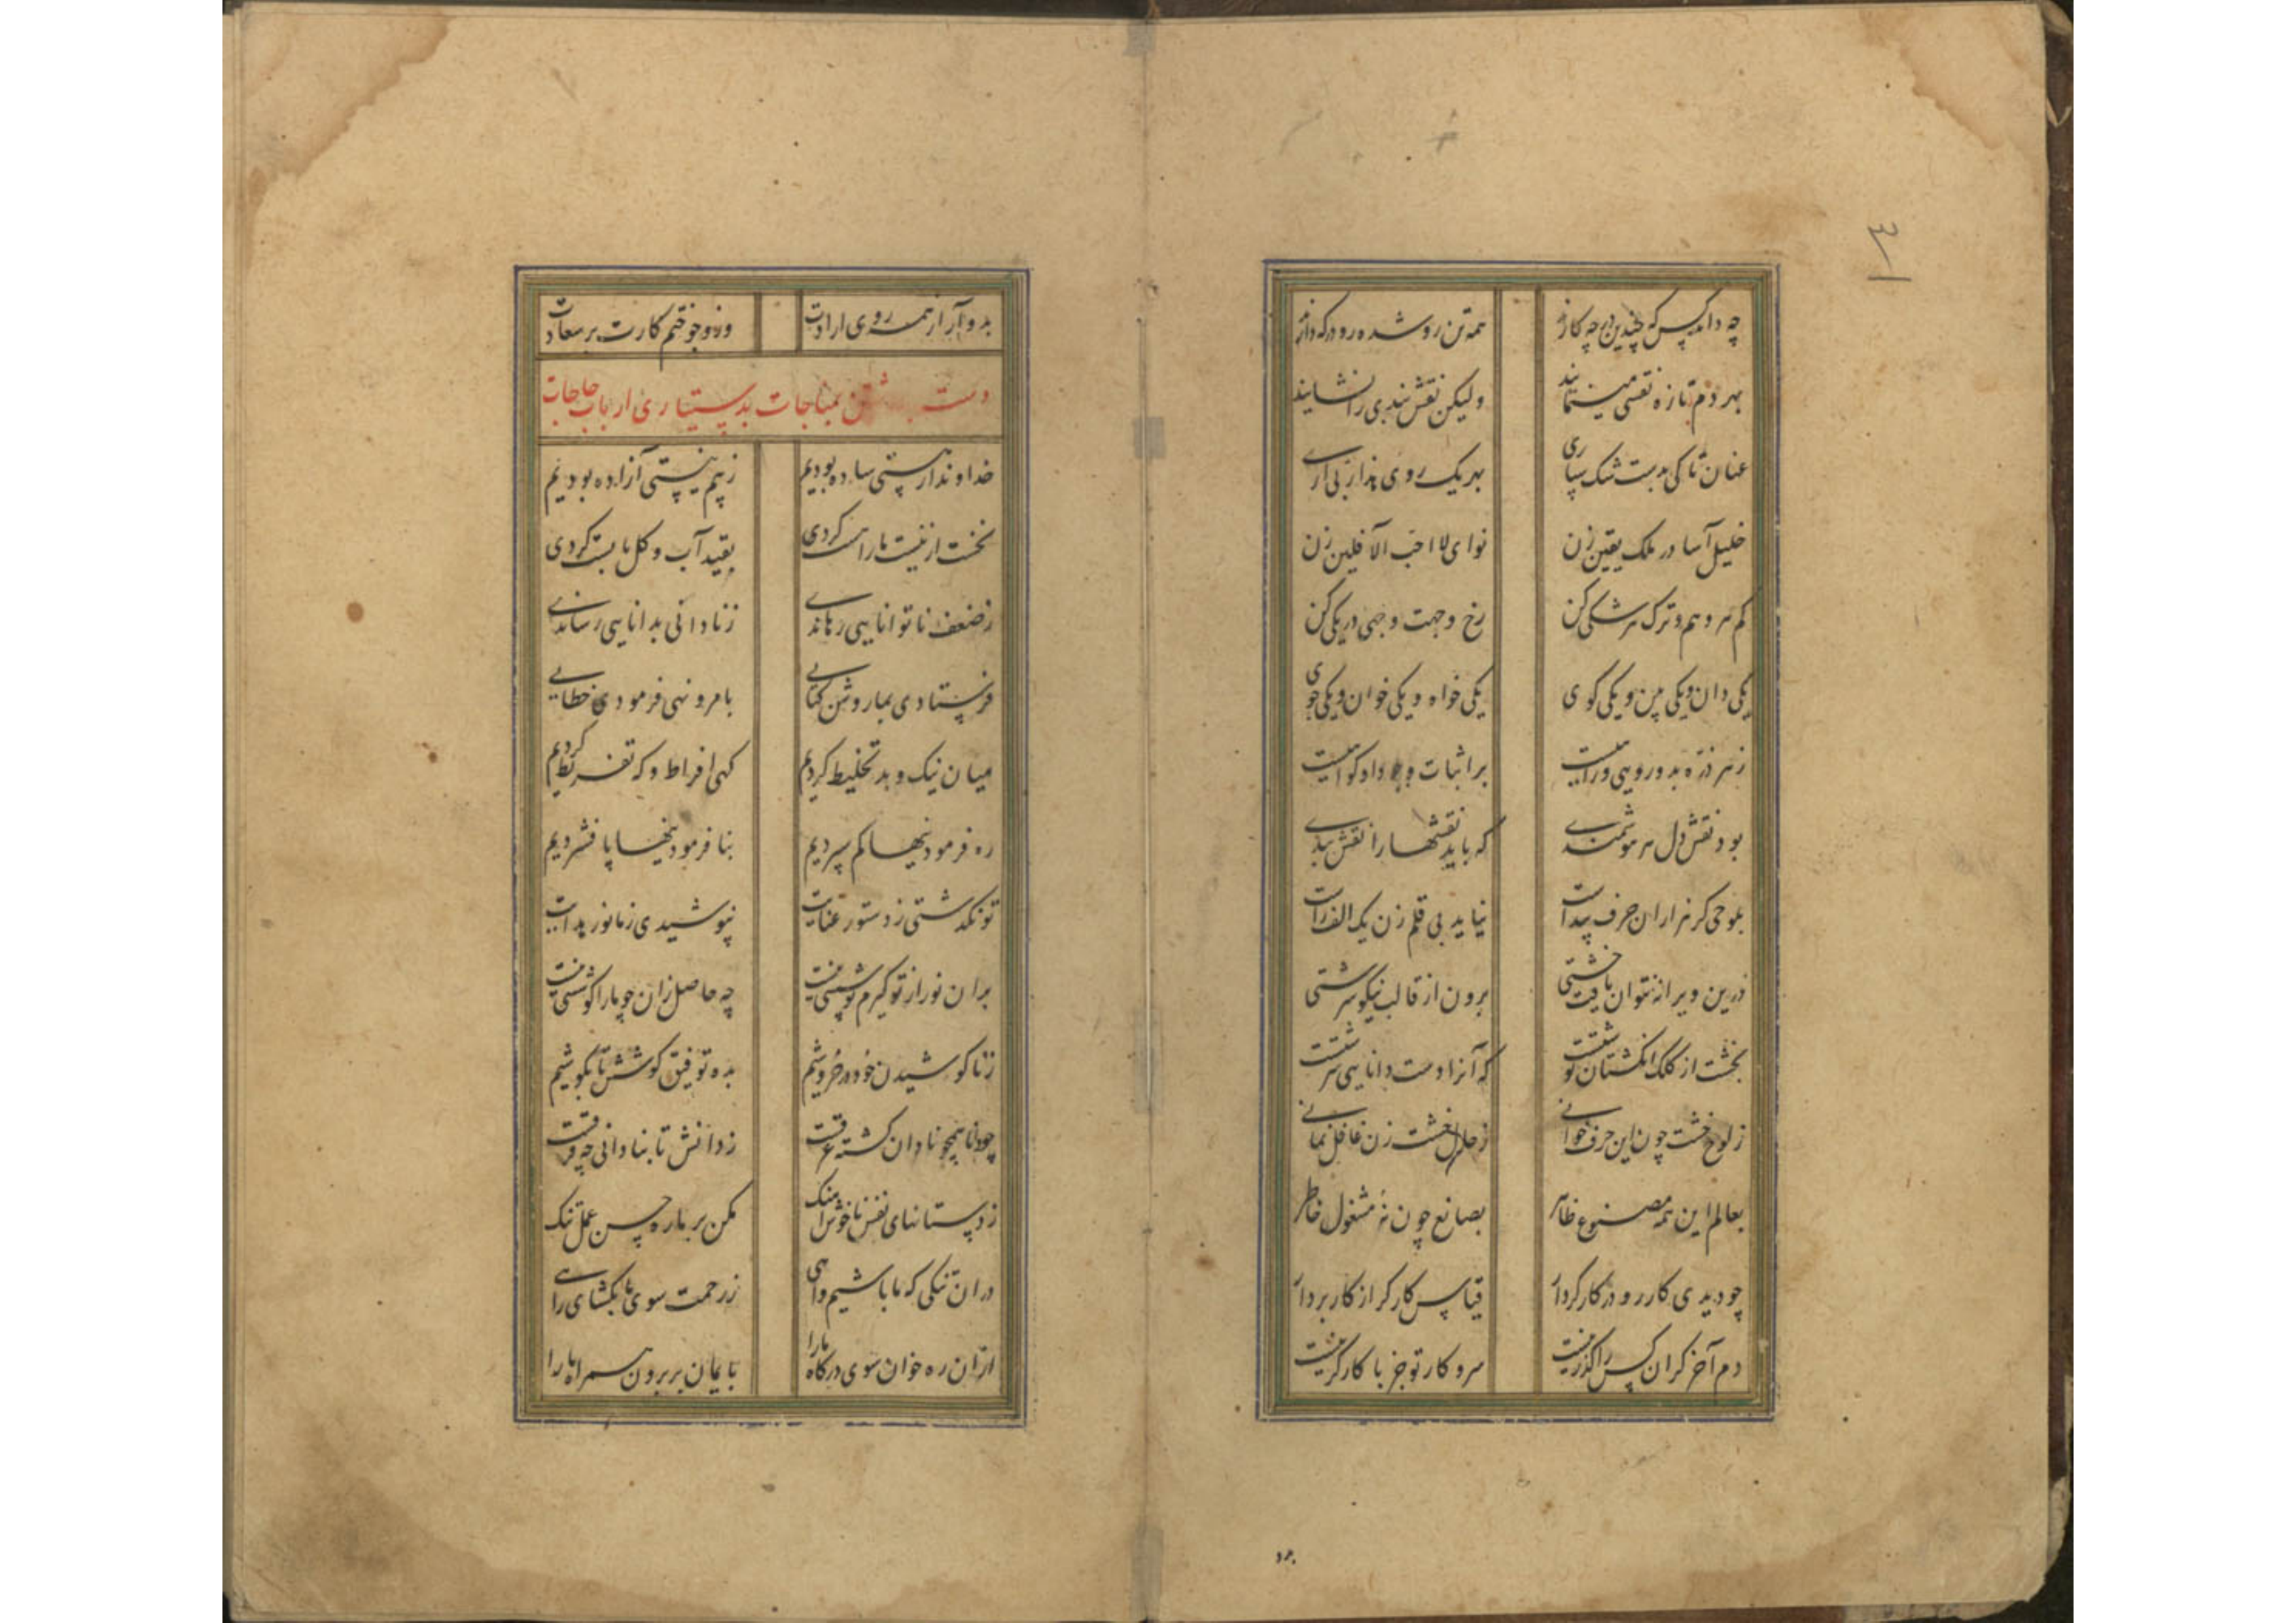 ۳
چه داند کس که چندین در چه کارند همه تن رو شده رو در که دارند
بهر دم تازه نقشی مینمایند ولیکن نقش بندی را نشایند
عنان تا کی بدست شک سپاری بهر یک روی هذا ربی آری
خلیل آسا در ملک یقین زن نوای لا احب الآفلین زن
کم هر وهم و ترک هر شکی کن رخ وجهت وجهی در یکی کن
یکی دان و یکی بین و یکی گوی یکی خواه و یکی خوان و یکی جوی
ز هر ذره بدو رویی و راهیست بر اثبات وجود او گواهیست
بود نقش دل هر هوشمندی که باید نقشها را نقش بندی
بلوحی گر هزاران حرف پیداست نیاید بی قلم زن یک الف راست
درین ویرانه نتوان یافت خشتی برون از قالب نیکو سرشتی
بخشت از کلک انگشتان نوشتست که آنرا دست دانایی سرشتست
ز لوح خشت چون این حرف خوانی ز حال خشت زن غافل نمانی
بعالم این همه مصنوع ظاهر بصانع چون نه مشغول خاطر
چو دیدی کار رو در کارگر دار قیاس کارگر از کار بردار
دم آخر کزان کس را گذر نیست سر و کار تو جز با کارگر نیست
بدو
بدو آر از همه روی ارادت وزو جو ختم کارت بر سعادت
دست برداشتن بمناجات بدستیاری ارباب حاجات
خداوندا ز هستی ساده بودیم ز بیم نیستی آزاده بودیم
نخست از نیست ما را هست کردی بقید آب و گل پابست کردی
ز ضعف ناتوانایی رهاندی ز نادانی بدانایی رساندی
فرستادی بما روشن کتابی بامر و نهی فرمودی خطابی
میان نیک و بد تخلیط کردیم گهی افراط و گه تفریط کردیم
ره فرمودنیها کم سپردیم بنا فرمودنیها پا فشردیم
تو نگذشتی ز دستور عنایت نپوشیدی ز ما نور هدایت
بران نور از تو گیرم پوششی نیست چه حاصل زان چو ما را کوششی نیست
ز نا کوشیدن خود در خروشیم بده توفیق کوشش تا بکوشیم
چو دانا همچو نادان گشته غرقست ز دانش تا بنادانی چه فرقست
ز دستانهای نفس ناخوش آهنگ مکن بر ما ره حسن عمل تنگ
دران تنگی که ما باشیم و آهی ز رحمت سوی ما بگشای راهی
ازان ره خوان سوی درگاه ما را بایمان بر برون همراه ما را